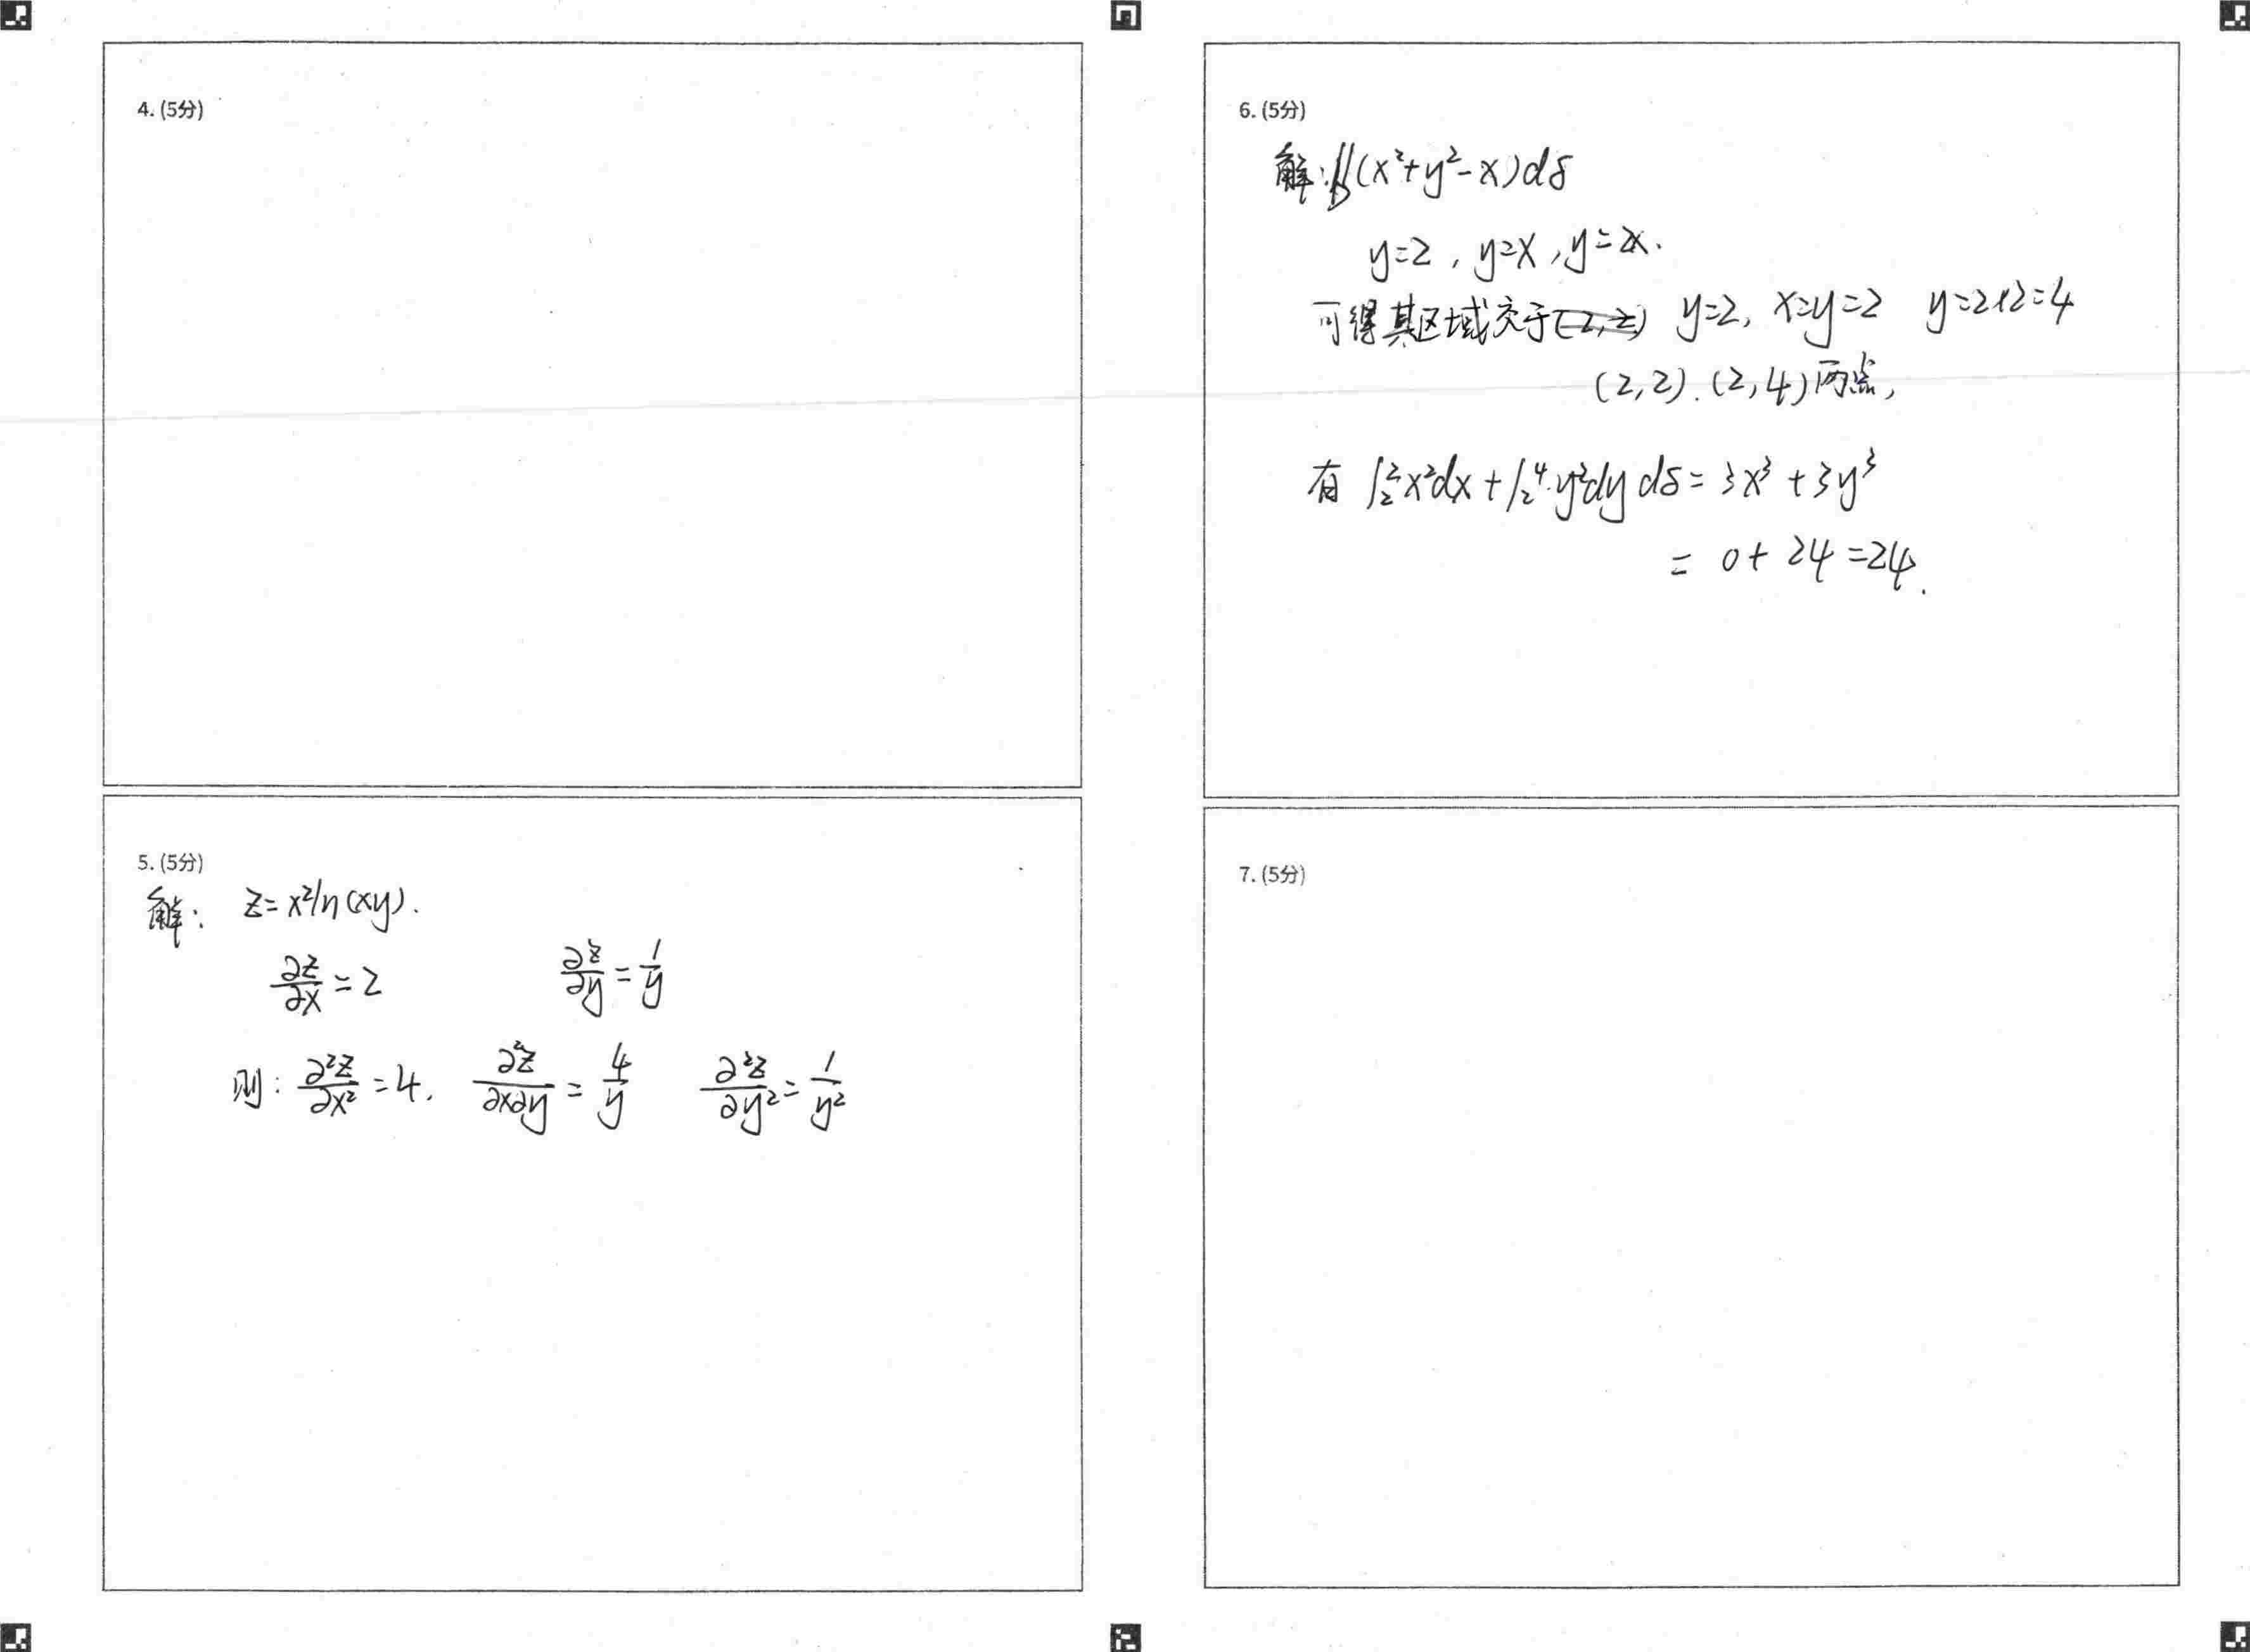 4. (5分)
5. (5分)
解: z=x²ln(xy).
∂z/∂x=2 ∂z/∂y=1/y
则: ∂²z/∂x²=4, ∂²z/∂x∂y=4/y ∂²z/∂y²=1/y²
6. (5分)
解:∬(x²+y²-x)dδ
y=2, y=x, y=2x.
可得其区域交于 y=2, x=y=2 y=2×2=4
(2,2).(2,4)两点,
有 ∫₂²x²dx+∫₂⁴y²dy dδ=3x³+3y³
= 0+24=24.
7. (5分)